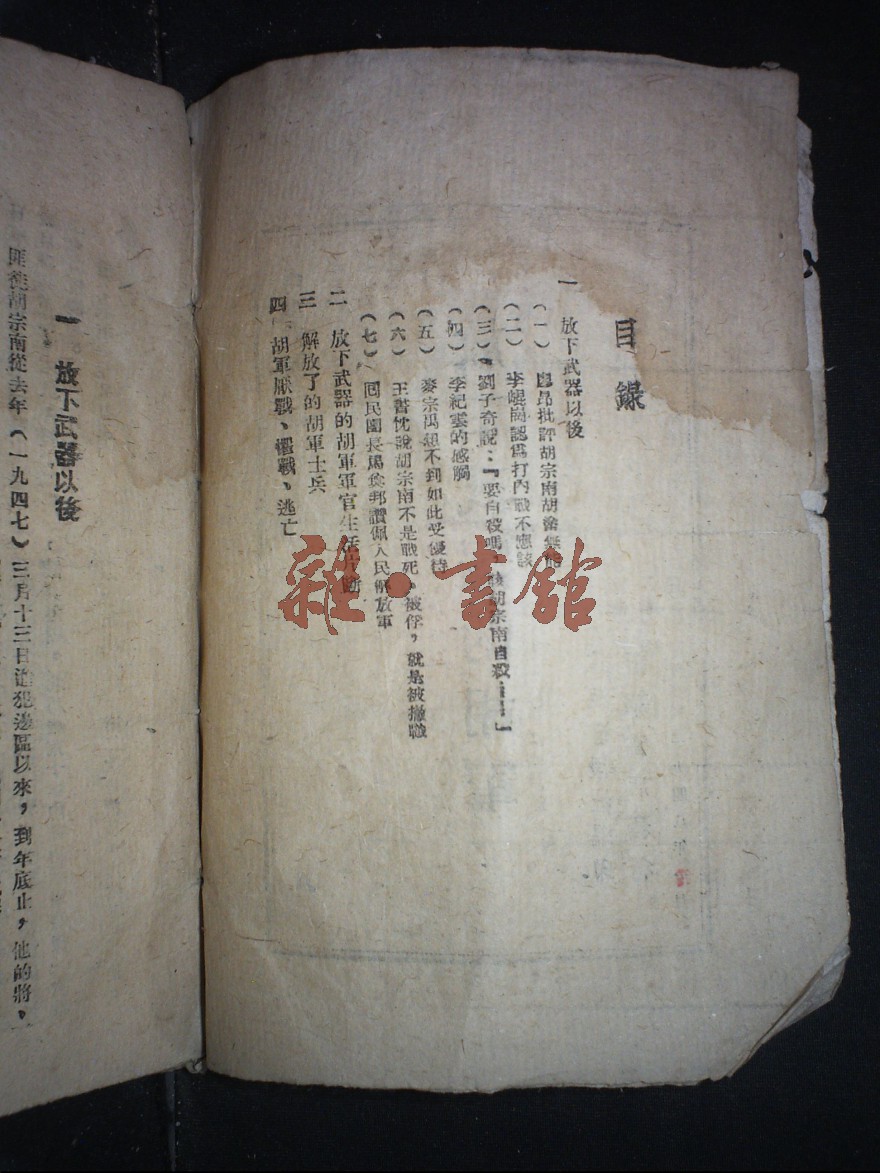 目錄
一 放下武器以後
（一）廖昂批評胡宗南胡濤無能
（二）李崐崗認爲打內戰不應該
（三）劉子奇說：「要自殺嗎，後胡宗南自殺……」
（四）李紀雲的感觸
（五）麥宗禹想不到如此受優待
（六）王書忱說胡宗南不是戰死，被俘，就是被撤職
（七）回民團長馬食邦讚佩人民解放軍
二 放下武器的胡軍軍官生活片斷
三 解放了的胡軍士兵
四 胡軍厭戰、懼戰、逃亡
雜·書館
一 放下武器以後
匪徒胡宗南從去年（一九四七）三月十三日進犯邊區以來，到年底止，他的將、